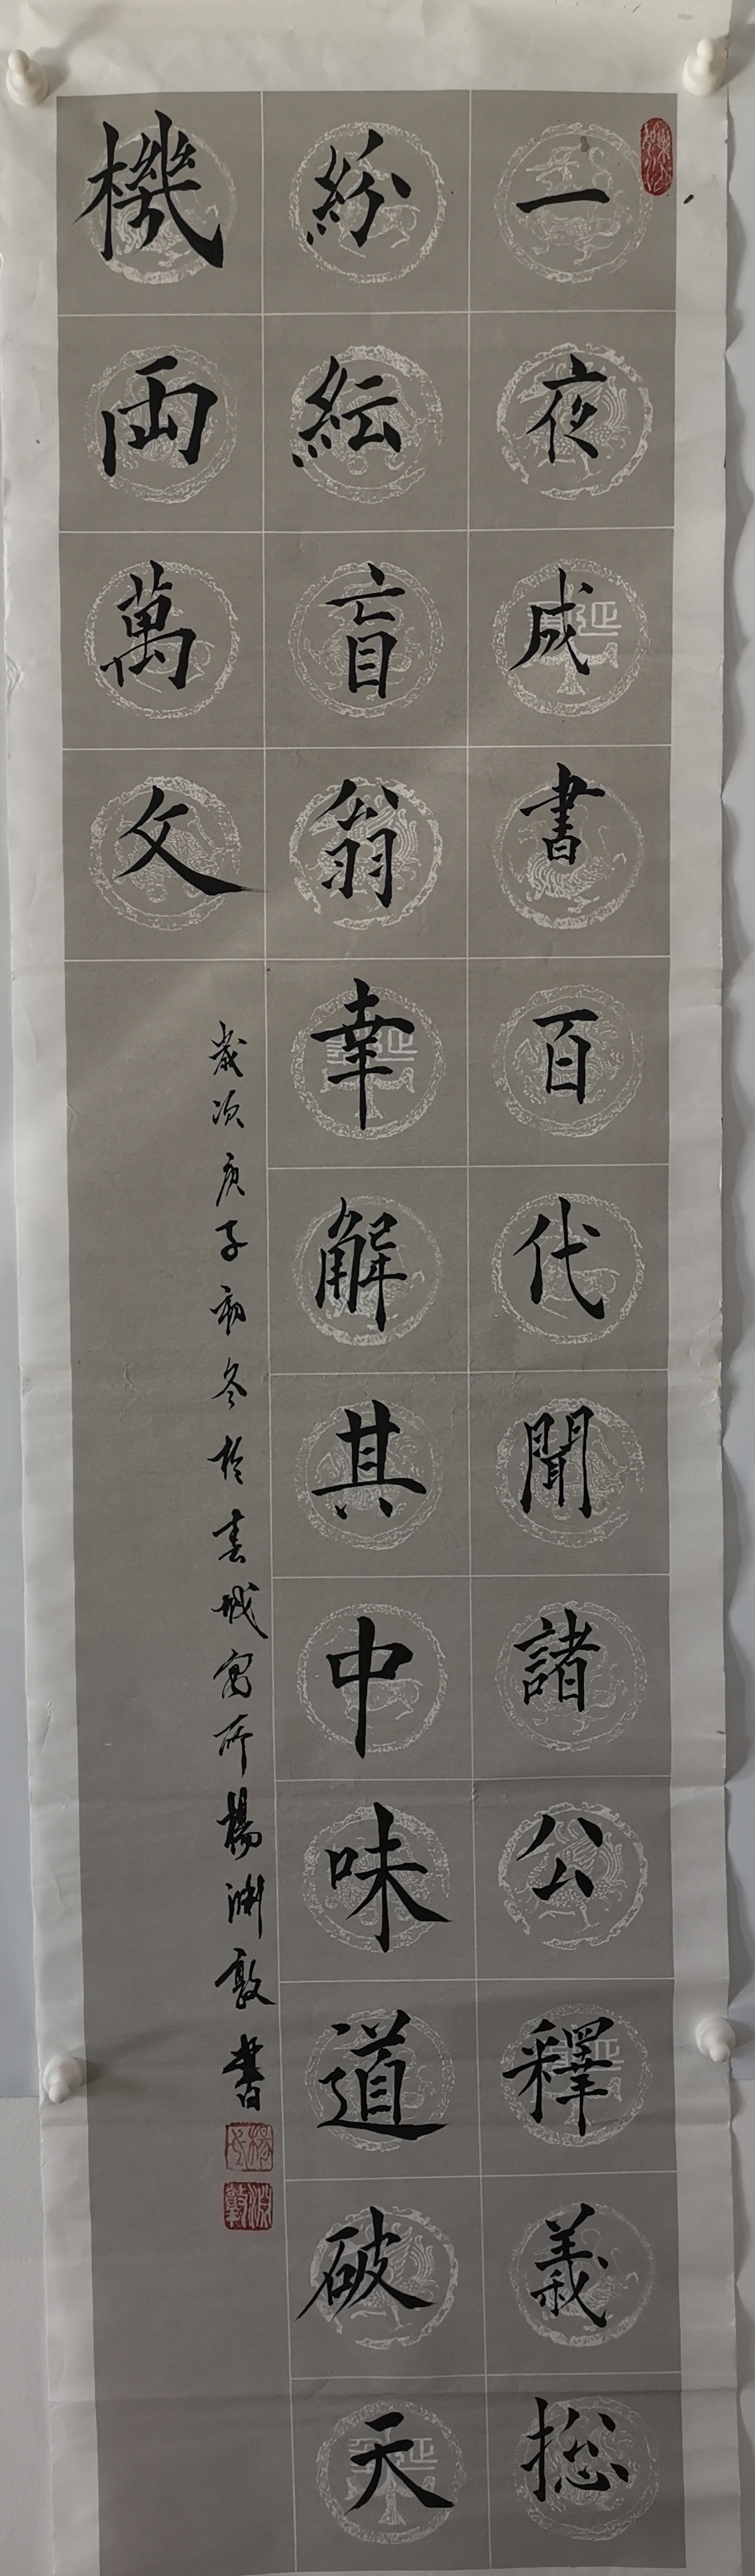 一夜成書百代聞諸公釋義総
紛紜盲翁幸解其中味道破天
機両萬文
歲次庚子初冬於春城寓所楊渊敦書
楊
渊敦